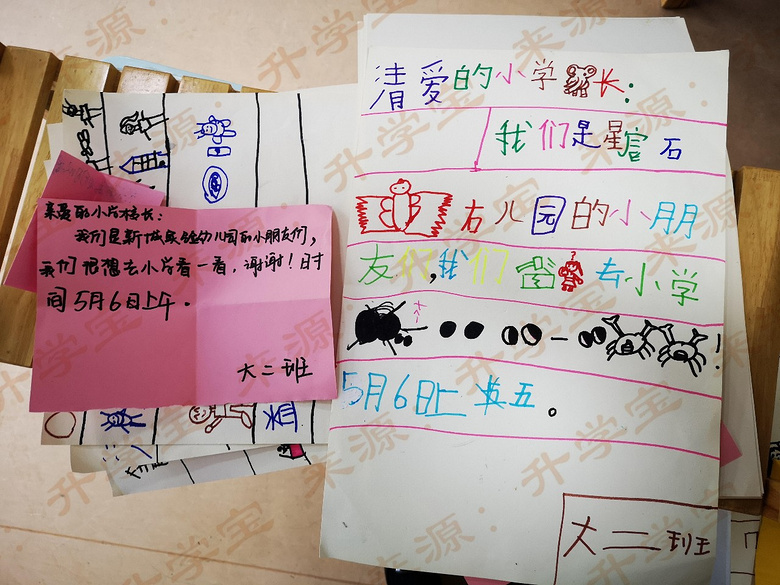 亲爱的小片校长：
我们是新城实验幼儿园的小朋友们，
我们很想去小片看一看，谢谢！日寸
间5月6日上午。
大二班
清爱的小学长：
我们是星宫石
右儿园的小朋
友们，我们去小学
一！
5月6日上五。
大二班
来源：升学宝
来源：升学宝
来源：升学宝
来源：升学宝